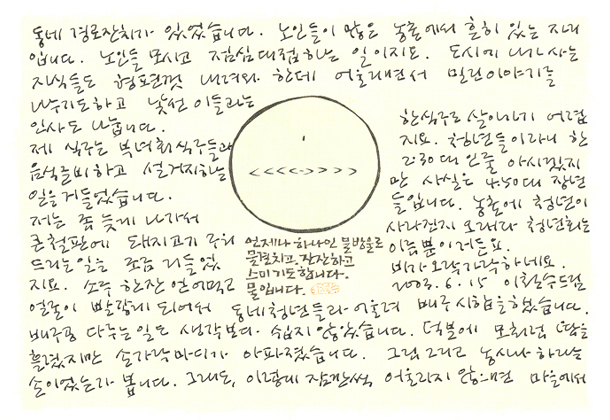 동네 경로잔치가 있었습니다. 노인들이 많은 농촌에서 흔히 있는 자리
입니다. 노인들 모시고 점심대접하는 일이지요. 도시에 나가 사는
자식들도 형편껏 내려와 한데 어울리면서 밀린이야기를
나누기도하고 낯선 이들과는
인사도 나눕니다.
제 식구는 부녀회식구들과
음식준비하고 설거지하는
일을 거들었습니다.
저는 좀 늦게 나가서
큰 철판에 돼지고기 구워
드리는 일을 조금 거들었
지요. 소주 한잔 얻어먹고
얼굴이 발갛게 되어서 동네청년들과 어울려 배구시합을 했습니다.
배구공 다루는 일은 생각보다 쉽지 않았습니다. 덕분에 모처럼 땀을
흘렸지만 손가락마디가 아파졌습니다. 그림 그리고 농사나 하라는
손이었는가 봅니다. 그래도, 이렇게 잠깐씩 어울리지 않으면 마을에서
한식구로 살아가기 어렵
지요. 청년들이라니 한
2.30대 인줄 아시겠지
만 사실은 4.50대 장년
들입니다. 농촌에 청년이
사라진지 오래라 청년회는
이름뿐이거든요.
비가 오락가락하네요.
2003. 6. 15 이철수드림
언제나 하나인 물방울로
물결치고, 잔잔하고
스미기도합니다.
물입니다.